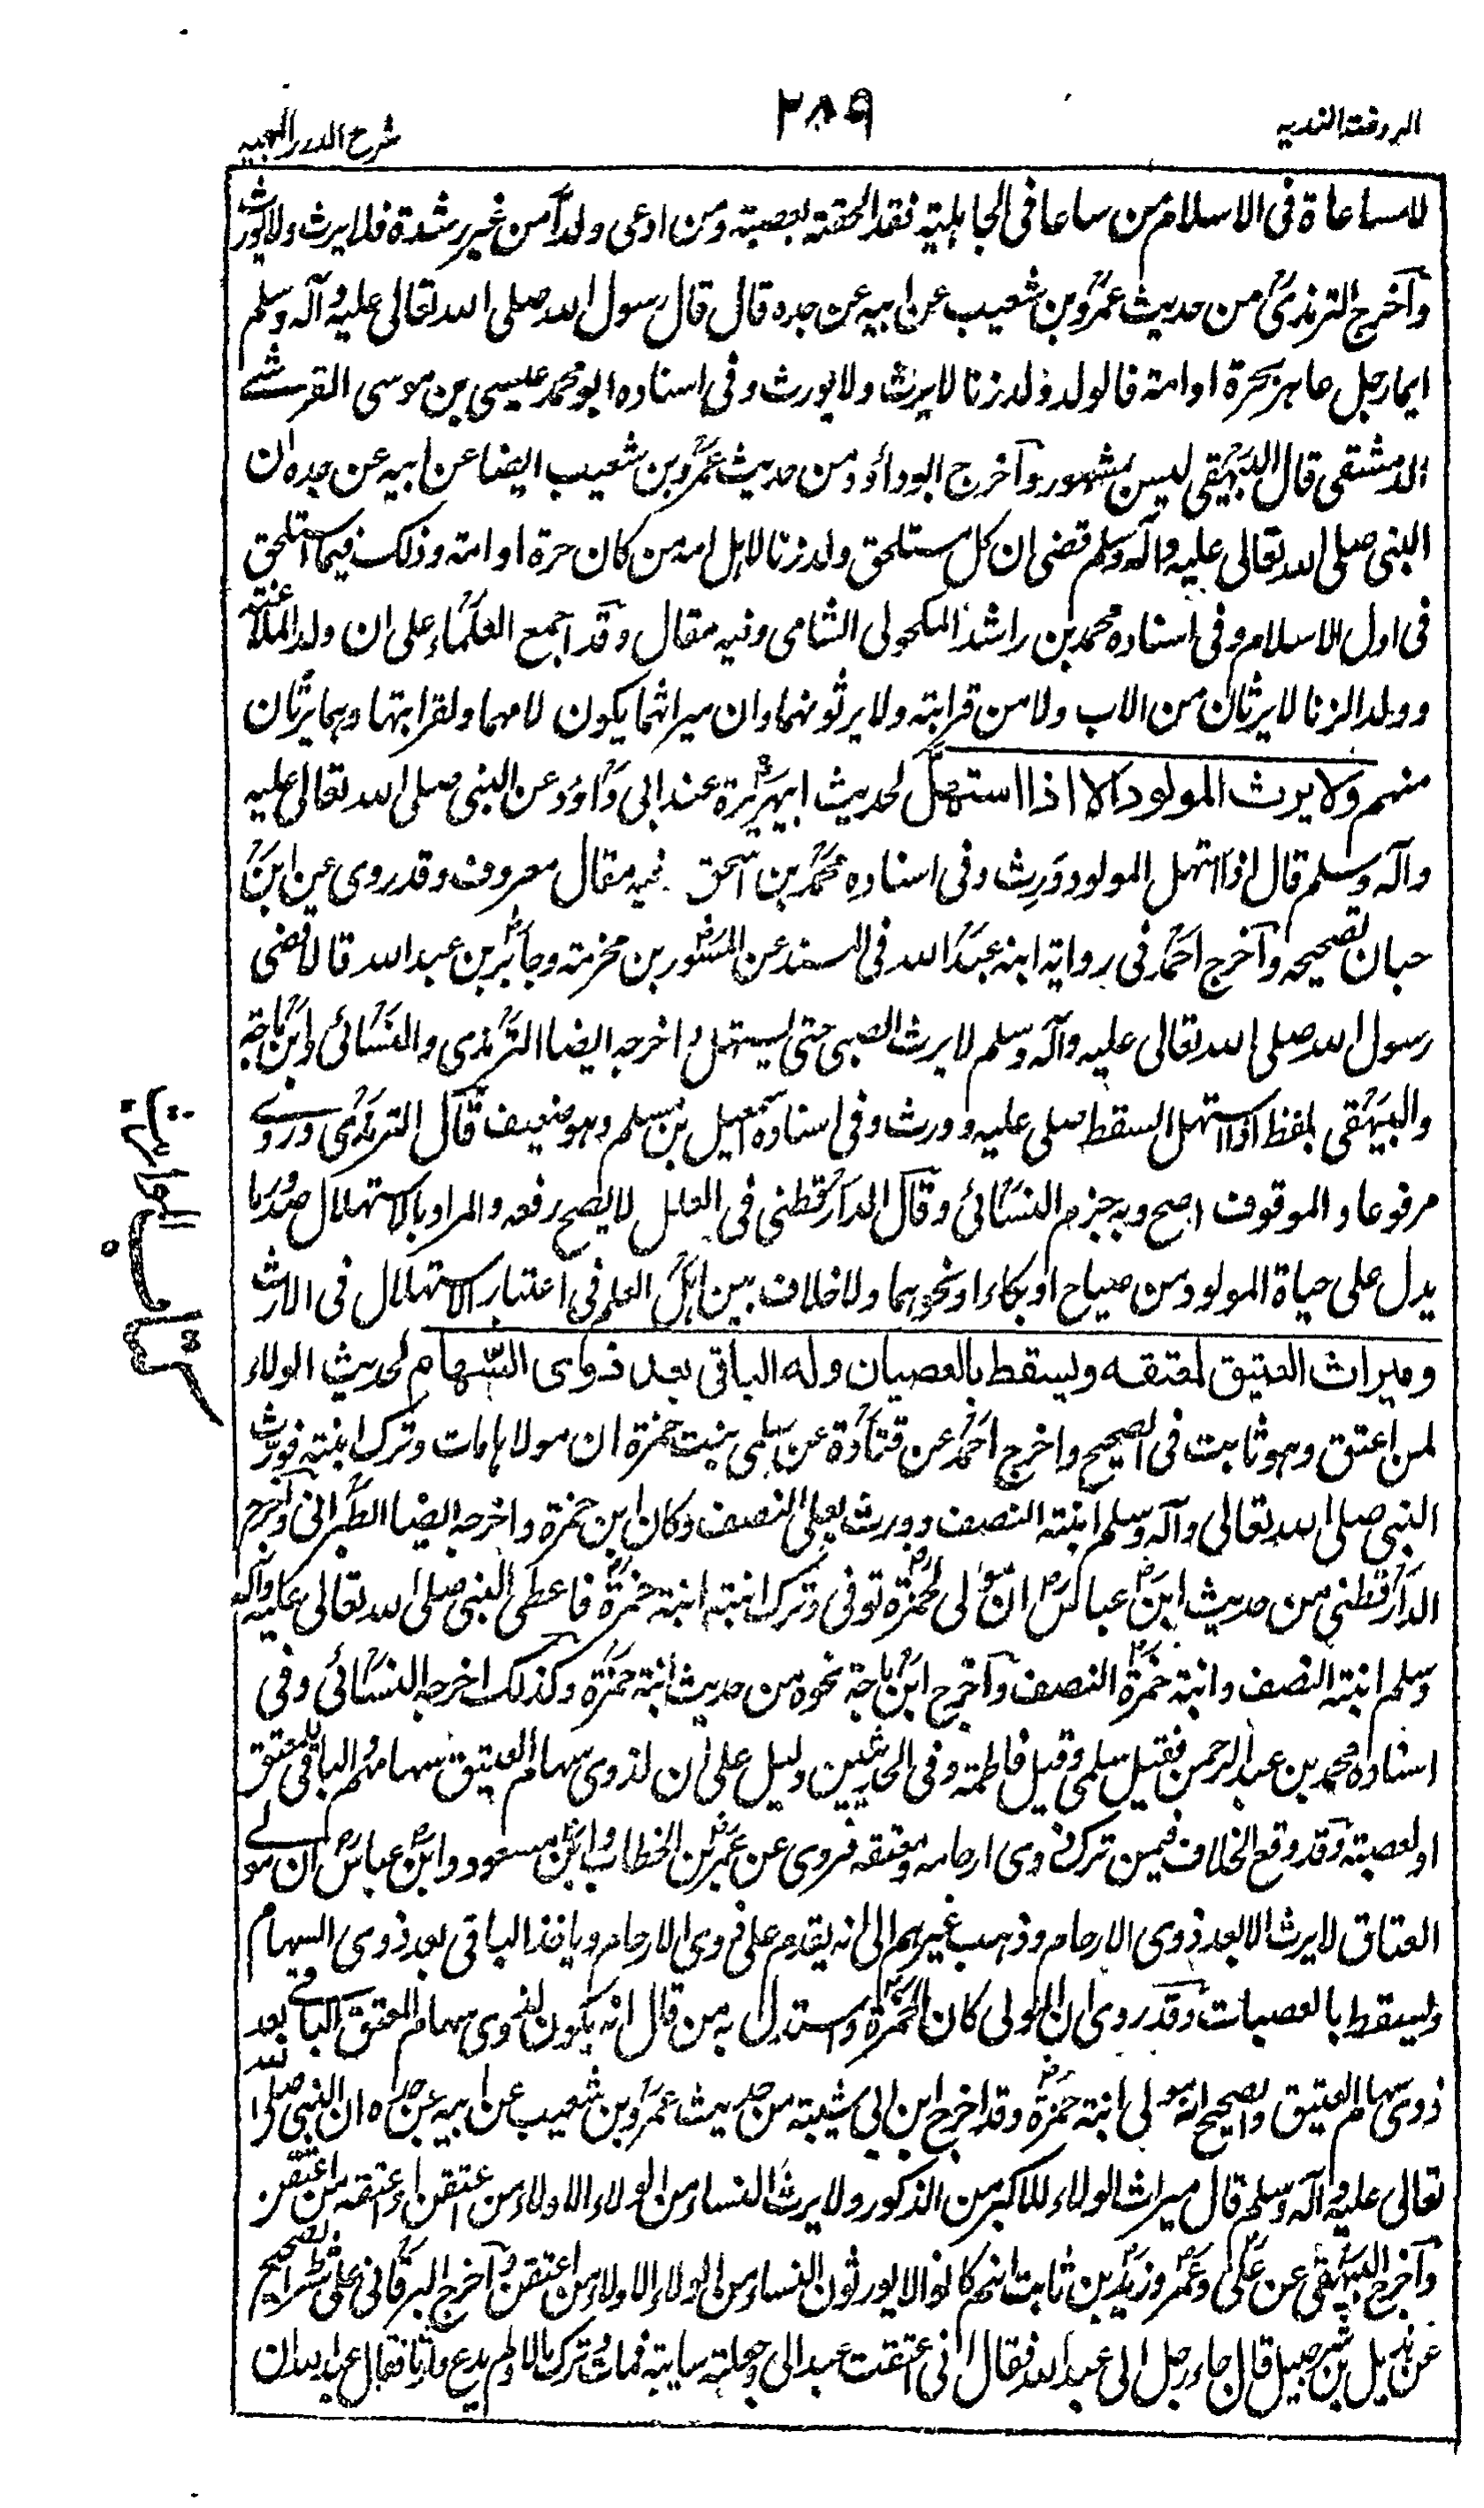 الروضة الندیه
۲۸۹
شرح الدرر البهیه
لا مساعاة فی الاسلام من ساعا فی الجاہلیة فقد الحقته بعصبته ومن ادعی ولداً من غیر رشدة فلا یرث ولا یورث
وآخرج الترمذی من حدیث عمرو بن شعیب عن ابیه عن جده قال قال رسول الله صلی الله تعالی علیه وآله وسلم
ایما رجل عاہر بحرة او امة فالولد ولد زنا لا یرث ولا یورث وفی اسناده ابو محمد عیسی بن موسی القرشے
الدمشقی قال البیہقی لیس بمشهور وآخرج ابو داؤد من حدیث عمرو بن شعیب ایضا عن ابیه عن جده ان
النبی صلی الله تعالی علیه وآله وسلم قضی ان کل مستلحق ولد زنا لاہل امه من کان حرة او امة وذلک فیما استلحق
فی اول الاسلام وفی اسناده محمد بن راشد المکحولی الشامی وفیه مقال وقد اجمع العلماء علی ان ولد الملاعنة
وولد الزنا لا یرثان من الاب ولا من قرابته ولا یرثونہما وان میراثہما یکون لامہما ولقرابتہا وہما یرثان
منہم ولا یرث المولود الا اذا استهل لحدیث ابی ہریرة عند ابی داؤد عن النبی صلی الله تعالی علیه
وآله وسلم قال اذا استهل المولود وَرِث وفی اسناده محمد بن اسحق فیه مقال معروف وقد روی عن ابن
حبان تصحیحه وآخرج احمد فی روایة ابنه عبد الله فی المسند عن المسور بن مخرمة وجابر بن عبد الله قالا قضی
رسول الله صلی الله تعالی علیه وآله وسلم لا یرث الصبی حتی یستهل واخرجه ایضا الترمذی والنسائی وابن ماجة
والبیہقی بلفظ اذا استهل السقط صلی علیه وورث وفی اسناده اسمعیل بن مسلم وہو ضعیف قال الترمذی وروے
مرفوعا والموقوف اصح وبه جزم النسائی وقال الدارقطنی فی العلل لا یصح رفعه والمراد بالاستهلال صدور ما
یدل علی حیاة المولود من صیاح او بکاء او نحوہما ولا خلاف بین اہل العلم فی اعتبار الاستهلال فی الارث
ومیراث العتیق لمعتقه ویسقط بالعصبات وله الباقی بعد ذوی السهام لحدیث الولاء
لمن اعتق وہو ثابت فی الصحیح واخرج احمد عن قتادة عن سلمی بنت حمزة ان مولاہا مات وترک ابنته فورث
النبی صلی الله تعالی وآله وسلم ابنته النصف وورث یعلی النصف وکان ابن حمزة واخرجه ایضا الطبرانی وآخرج
الدارقطنی من حدیث ابن عباس ان مولی لحمزة توفی وترک ابنته ابنة حمزة فاعطی النبی صلی الله تعالی علیه وآله
وسلم ابنته النصف وابنة حمزة النصف وآخرج ابن ماجة نحوه من حدیث ابنة حمزة وکذلک اخرجه النسائی وفی
اسناده محمد بن عبد الرحمن فقیل سلمی وقیل فاطمة وفی الحدیثین دلیل علی ان لذوی سہام العتیق سہامہم والباقی للمعتق
او لعصبته وقد وقع الخلاف فیمن ترک ذوی ارحامه ومعتقه فروی عن عمر بن الخطاب وابن مسعود وابن عباس ان مولے
العتاق لا یرث الا بعد ذوی الارحام وذہب غیرہم الی انه یقدم علی ذوی الارحام ویاخذ الباقی بعد ذوی السہام
ویسقط بالعصبات وقد روی ان المولی کان لحمزة واستدل به من قال انه یکون لذوی سہام المعتق الباقے بعد
ذوی سہام العتیق والصحیح انه مولی ابنة حمزة وقد اخرج ابن ابی شیبة من حدیث عمرو بن شعیب عن ابیه عن جده ان النبی صلی الله
تعالی علیه وآله وسلم قال میراث الولاء للاکبر من الذکور ولا یرث النساء من الولاء الا ولاء من اعتقن او اعتقه من اعتقن
وآخرج البیہقی عن علی وعمر وزید بن ثابت انہم کانوا لا یورثون النساء من الولاء الا ولاء من اعتقن وآخرج البرقانی علی شرط الصحیح
عن ہذیل بن شرحبیل قال جاء رجل الی عبد الله فقال انی اعتقت عبدا لی وجعلته سایبة فمات وترک مالا ولم یدع وارثا فقال عبد الله ان
کتاب المواریث